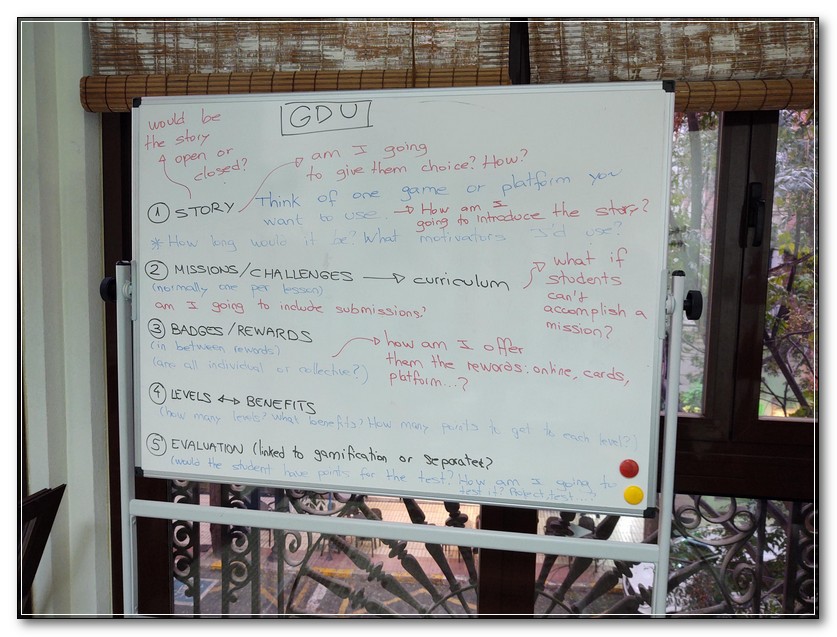 GDU
would be
the story
open or
closed?
am I going
to give them choice? How?
① STORY
Think of one game or platform you
want to use. → How am I
going to introduce the story?
* How long would it be? What motivators I'd use?
② MISSIONS/CHALLENGES → curriculum
(normally one per lesson)
am I going to include submissions?
what if
students
can't
accomplish a
mission?
③ BADGES/REWARDS
(in between rewards)
(are all individual or collective?)
how am I offer
them the rewards: online, cards,
platform...?
④ LEVELS ↔ BENEFITS
(how many levels? What benefits? How many points to get to each level?)
⑤ EVALUATION (linked to gamification or separate?)
(would the student have points for the test? How am I going to
test it? Project, test...?